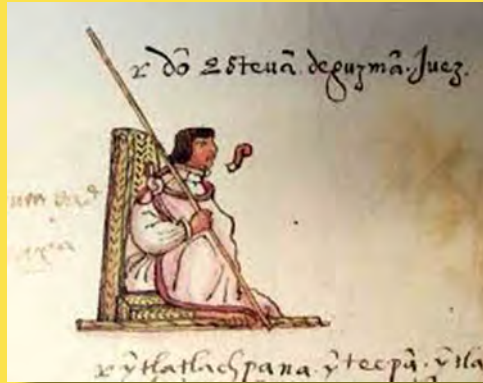 x dõ esteuã. deguzmã. Juez.
x ỹtlatlachpana. ỹtecpã. ỹtla